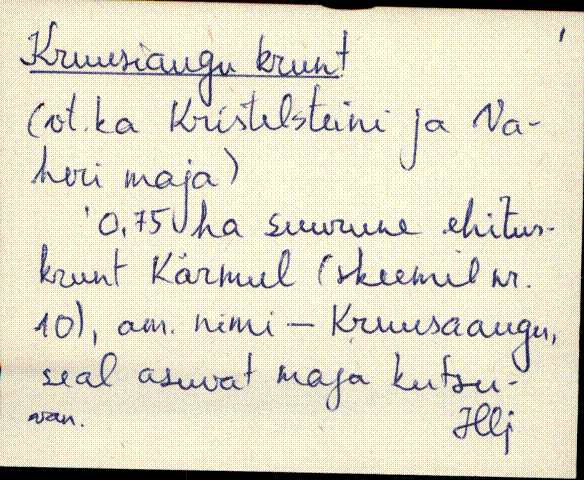 Kruusiaugu krunt
(vt. ka Kristelsteini ja Va-
heri maja)
0,75 ha suurune ehitus-
krunt Kärmul (skeemil nr.
10), am. nimi – Kruusaaugu,
seal asuvat maja kutsu-